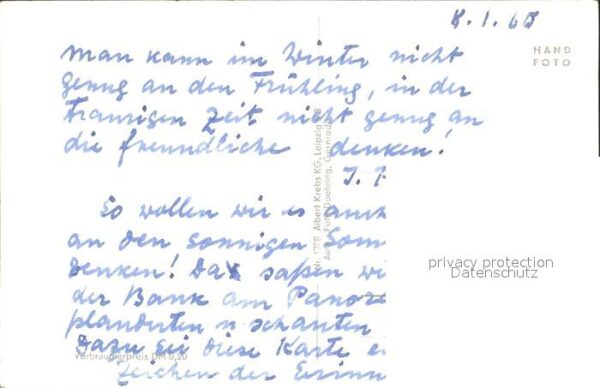 8.1.60
HAND
FOTO
Man kann im Winter nicht
genug an den Frühling, in der
traurigen Zeit nicht genug an
die freundliche denken!
So wollen wir es auch
an den sonnigen Som
denken! Da saßen wi
der Bank am Panora
plauderten u schauten
Dazu sei diese Karte ei
Zeichen der Erinn
Albert Krebs KG, Leipzig
Verbraucherpreis DM 0,20
privacy protection
Datenschutz